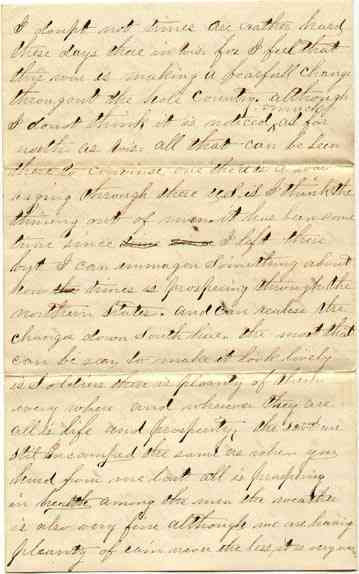 I doupt not times are rather hard
these days there in wis. for I feel that
this war is making a fearfull change
througout the hole Country. although
I dont think it is noticed as much as far
north as wis. all that can be seen
there to convince one there is a war
raging through there is I think the
thining out of men. it has been some
time since I left there
but I can immagon something about
how times is prospering through the
northern States. and can realise the
change down south here. the most that
can be seen to make it look lively
is soldiers there is plearty of them
every where and wherever they are
all is life and prosperity. the are
still Encamped the same as when you
heard from me last all is prospring
in health among the men the weather
is also very fine although we are having
plearty of rain never the less it is very